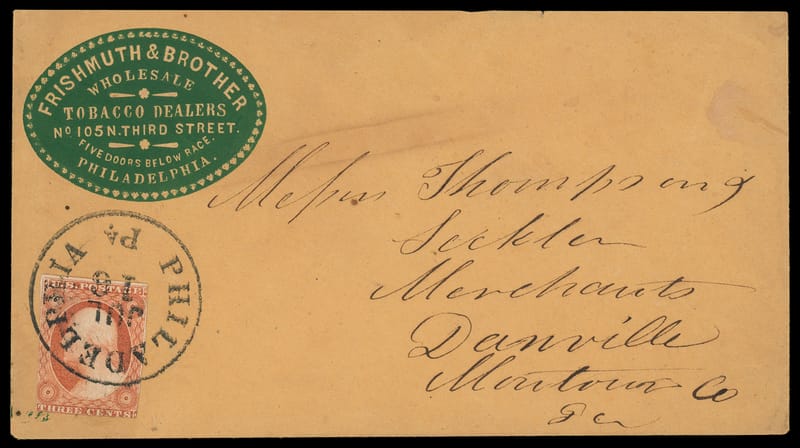 FRISHMUTH & BROTHER
WHOLESALE
TOBACCO DEALERS
No 105 N. THIRD STREET.
FIVE DOORS BELOW RACE.
PHILADELPHIA.
Messrs Thompson &
Seckler
Merchants
Danville
Montour Co
Pa
PHILADELPHIA Pa
16
U.S. POSTAGE
THREE CENTS